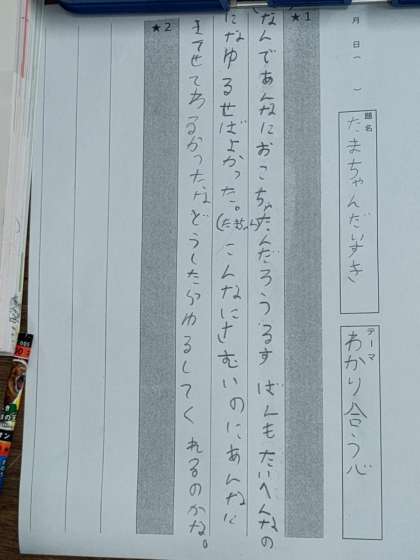 月 日（ ）
題名
たまちゃんだいすき
テーマ
わかり合う心
★1
なんであんなにおこちゃたんだろうるす ばんもたいへんなの
になゆるせばよかった。(たまちゃん)こんなにさむいのにあんなに
またせてわるかったなどうしたらゆるしてく れるのかな。
★2